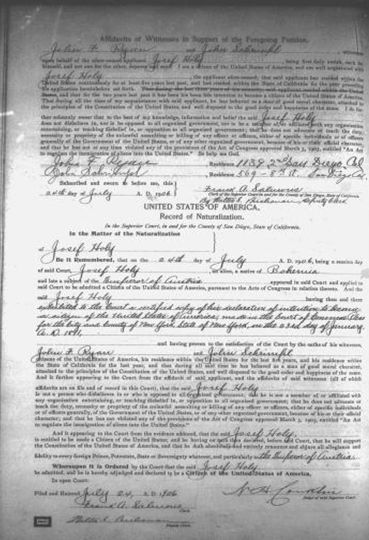 Affidavits of Witnesses in Support of the Foregoing Petition.
John F. Ryan and John
upon behalf of the above-named applicant Josef Holy, being first duly sworn,
himself, and not one for the other, deposes and says: I am a citizen of the United States of America, and am well acquainted with
Josef Holy, the applicant above-named; that said applicant has resided within the
United States continuously for at least five years last past, and has resided within the State of California for the year preceding
his application hereinbefore set forth.
States, and that for the two years last past it has been his intention to become a citizen of the United States of America.
That during all the time of my acquaintance with said applicant, he has behaved as a man of good moral character, attached to
the principles of the Constitution of the United States, and well disposed to the good order and happiness of the same.
ther solemnly swear that to the best of my knowledge, information and belief the said Josef Holy
does not disbelieve in, nor is he opposed to, all organized government;
entertaining, or teaching disbelief in, or opposition to, all organized government; that he does not advocate or teach the duty,
necessity or propriety of the unlawful assaulting or killing of any officer or officers, either of specific individuals or of officers
generally, of the Government of the United States, or of any other organized government, because of his or their official character,
and that he has not at any time violated any of the provisions of the Act of Congress approved March 3, 1903, entitled "An Act
to regulate the immigration of aliens into the United States." So help me God.
John F. Ryan Residence 1839 2nd San Diego Cal
John Residence 569 - 8th St. San Diego Cal
Subscribed and sworn to before me, this
24th day of July A. D. 1906 Frank A. Salmons
Clerk of the Superior Court in and for the County of San Diego, State of California.
By Deputy Clerk
UNITED STATES OF AMERICA.
Record of Naturalization.
In the Superior Court, in and for the County of San Diego, State of California.
In the Matter of the Naturalization
of Josef Holy
Be it Remembered, that on the 24th day of July A. D. 1906, being a session day
of said Court, Josef Holy, an alien, a native of Bohemia
and late a subject of the Emperor of Austria appeared in said Court and applied to
said Court to be admitted a Citizen of the United States of America, pursuant to the Acts of Congress in relation thereto. And the
said Josef Holy having then and there
exhibited to the Court a certified copy of his declaration of intention to become
a citizen of the United States of America, made in the Court of Common Pleas
for the City and County of New York State of New York, on the 23rd day of January,
A. D.
and having proven to the satisfaction of the Court by the oaths of his witnesses,
John F. Ryan and John
citizens of the United States of America, his residence within the United States for the last five years, and his residence within
the State of California for the last year, and that during all said time he has behaved as a man of good moral character,
attached to the principles of the Constitution of the United States, and well disposed to the good order and happiness of the same.
And it further appearing to the Court from the affidavit of said applicant, and the affidavits of said witnesses (all of which
affidavits are on file and of record in this Court), that the said Josef Holy
is not a person who disbelieves in or who is opposed to all organized government,
organization entertaining or teaching disbelief in, or opposition to, all organized government; that he does not advocate or
teach the duty, necessity or propriety of the unlawful assaulting or killing of any officer or officers, either of specific individuals
or of officers generally, of the Government of the United States, or of any other organized government, because of his or their official
character; and that he has not violated any of the provisions of the Act of Congress approved March 3, 1903, entitled "An Act
to regulate the immigration of aliens into the United States."
And it appearing to the Court from the evidence adduced, that the said Josef Holy
is entitled to be made a Citizen of the United States, and he having on oath before said Court, that he will support
the Constitution of the United States of America, and that he doth absolutely and entirely renounce and abjure all allegiance and
fidelity to every foreign Prince, Potentate, State or Sovereignty whatever, and particularly to the Emperor of Austria
Whereupon it is Ordered by the Court that the said Josef Holy
be admitted, and he is hereby adjudged and declared to be a Citizen of the United States of America.
In open Court:
Filed and Entered July 24, A. D. 1906
Judge of said Superior Court.
Frank A. Salmons
Clerk
Deputy Clerk